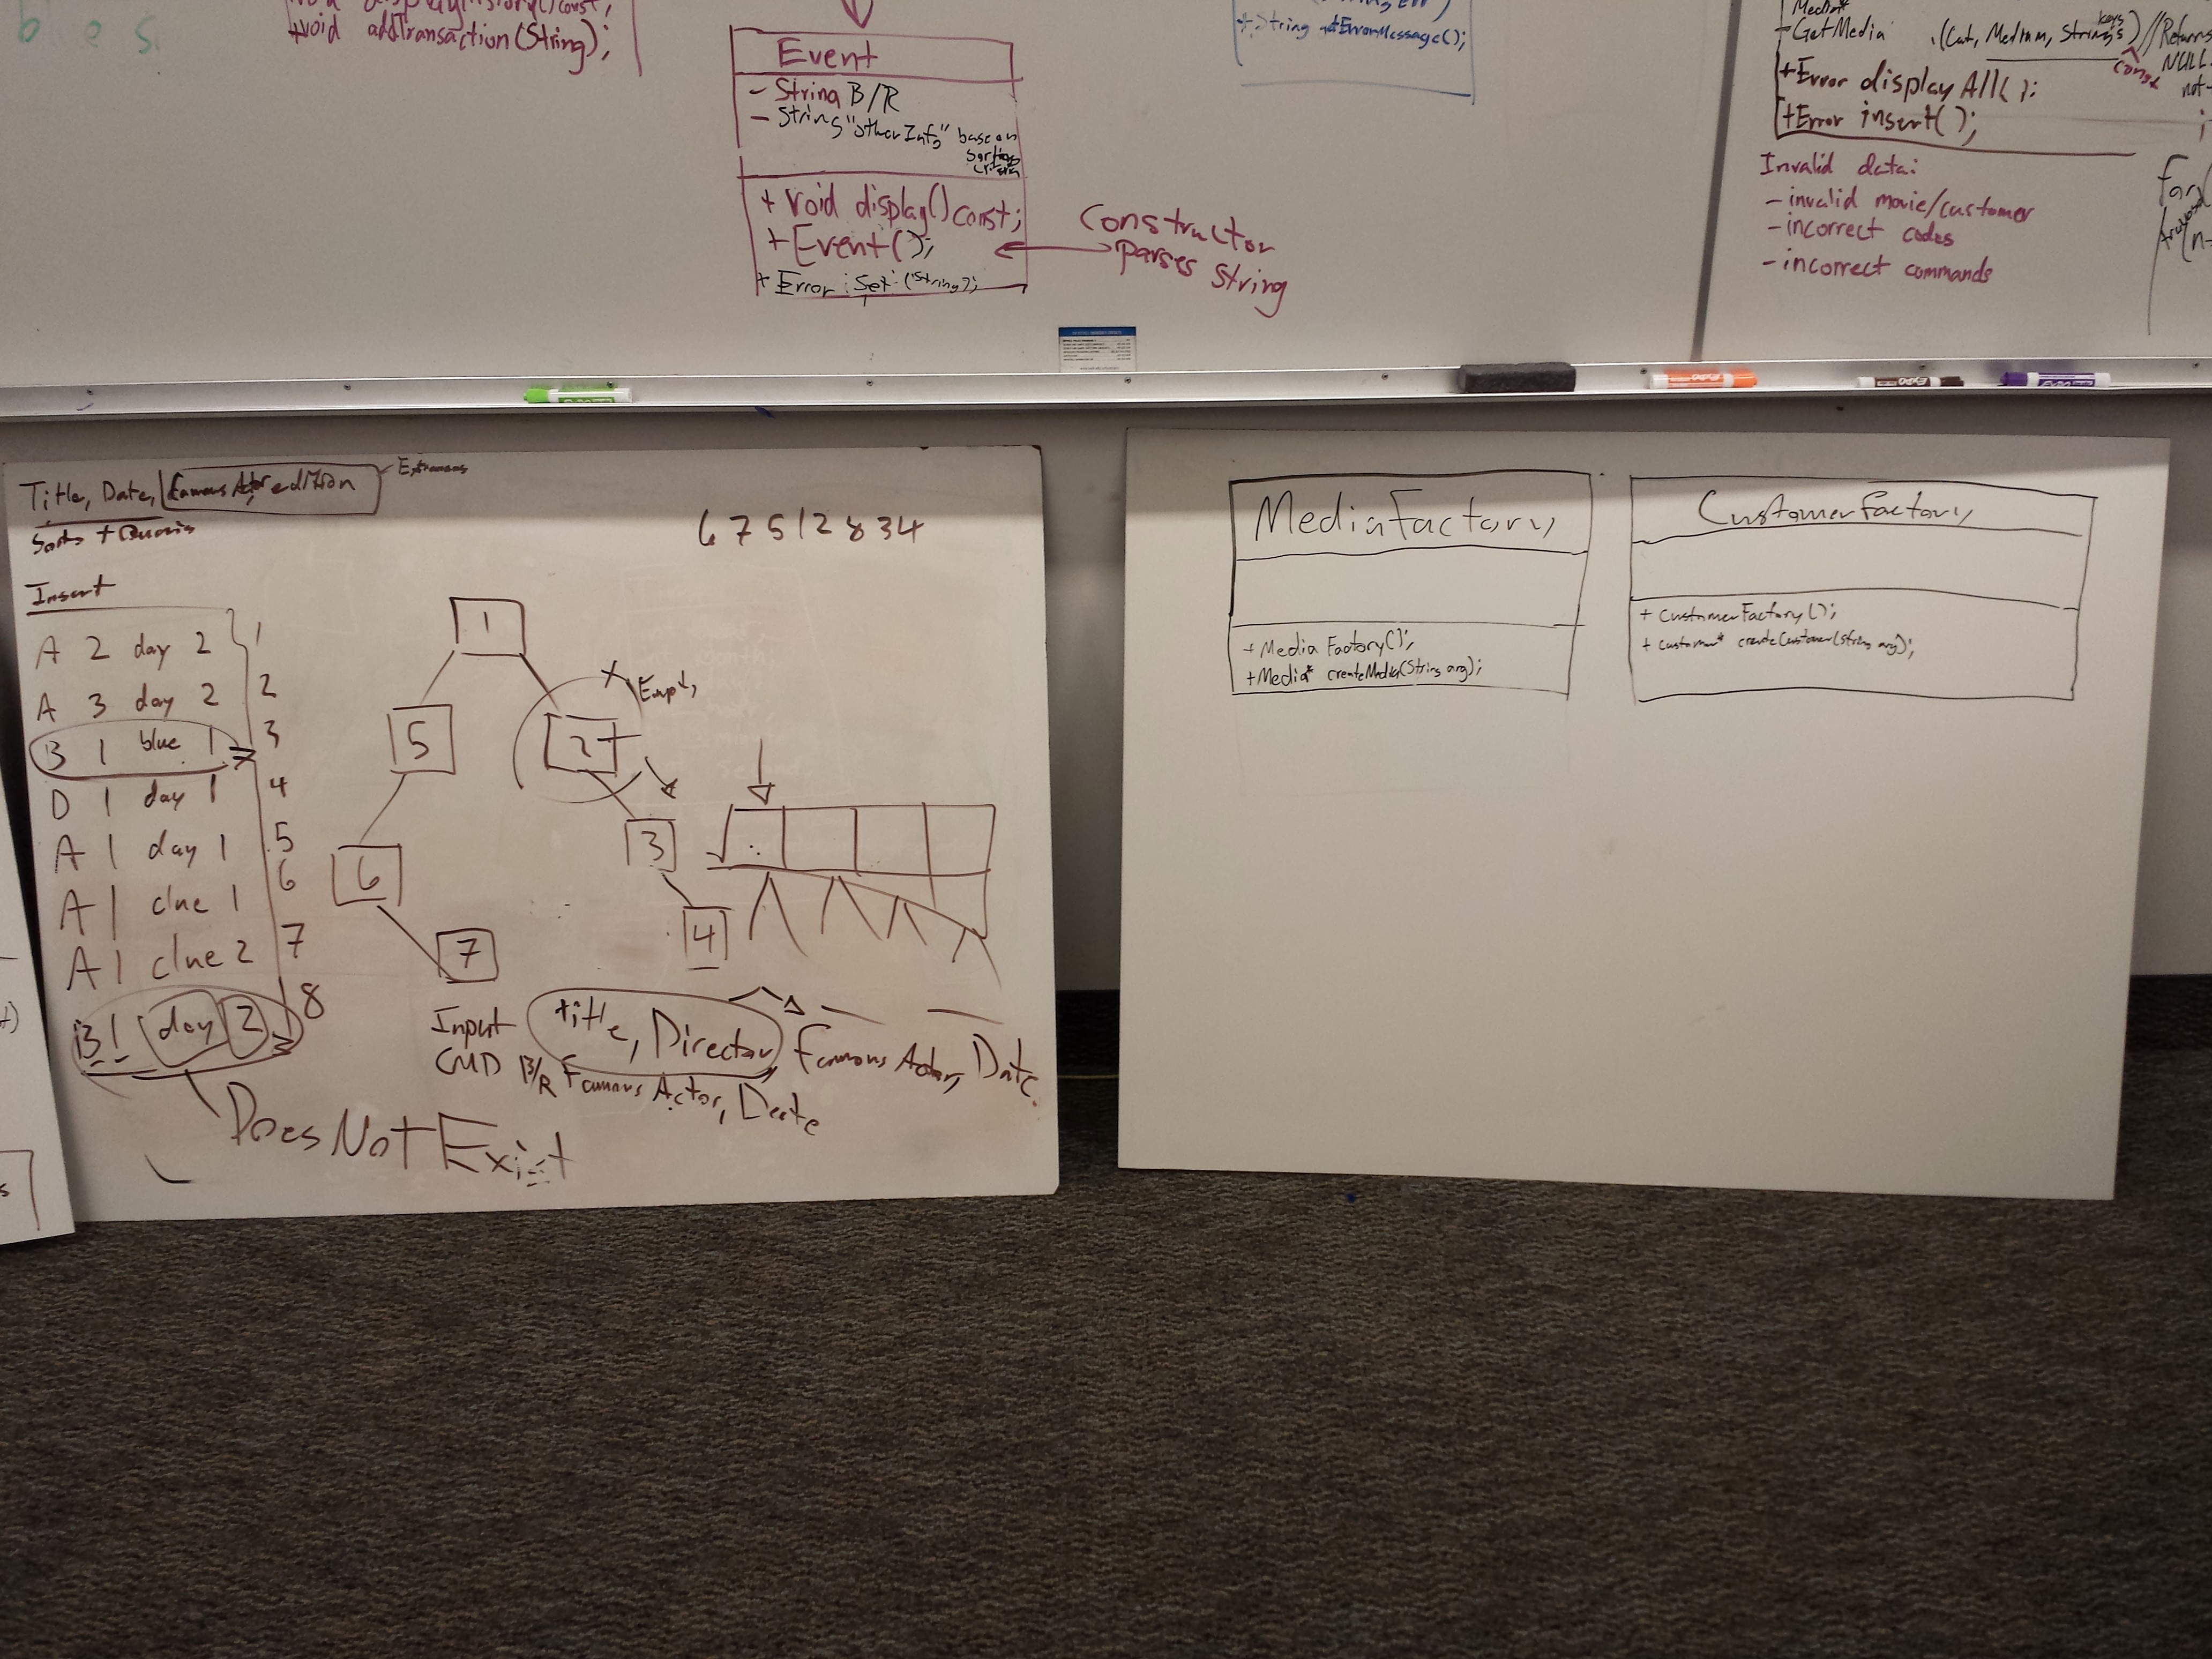 +void addTransaction(String);
Event
- String B/R
- String "other Info" base on
sorting
criteria
+ void display() const;
+ Event();
+ Error set (String);
Constructor
parses string
+ String getErrorMessage();
Media*
+GetMedia (Cat, Medium, Strings) // Returns
keys
const
NULL
not
+Error display All();
+Error insert();
Invalid data:
- invalid movie/customer
- incorrect codes
- incorrect commands
EXPO
EXPO
EXPO
Title, Date, Famous Actor, edition
Extraneous
Sorts + Queries
6 7 5 1 2 8 3 4
Insert
A 2 day 2 1
A 3 day 2 2
B 1 blue 1 3
D 1 day 1 4
A 1 day 1 5
A 1 clue 1 6
A 1 clue 2 7
B 1 day 2 8
Does Not Exist
1
5
2
Empty
6
3
7
4
Input title, Director Famous Actor, Date
CMD B/R Famous Actor, Date
MediaFactory
+ MediaFactory();
+ Media* createMedia(String arg);
CustomerFactory
+ CustomerFactory();
+ customer* createCustomer(string arg);